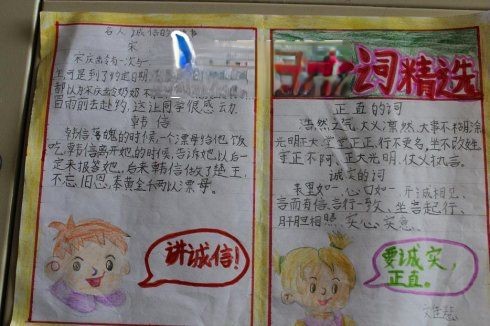 名人诚信的
宋
宋庆龄有一次与
可是到了约定日期,
都以为宋庆龄奶奶不
冒雨前去赴约,这让同学很感动.
韩信
韩信落魄的时候,一个漂母给他饭
吃,韩信离开她的时候,告诉她以后一
定来报答她,后来韩信做了楚王,
不忘旧恩,奉黄金千两以漂母。
讲诚信!
词精选
正直的词
浩然之气,大义凛然,大事不糊涂
光明正大,堂堂正正,行不更名,坐不改姓,
正不阿,正大光明,仗义执言。
诚实的词
表里如一,心口如一,开诚相见,
言而有信,言行一致,坐言起行,
肝胆相照,实心实意.
要诚实,
正直。